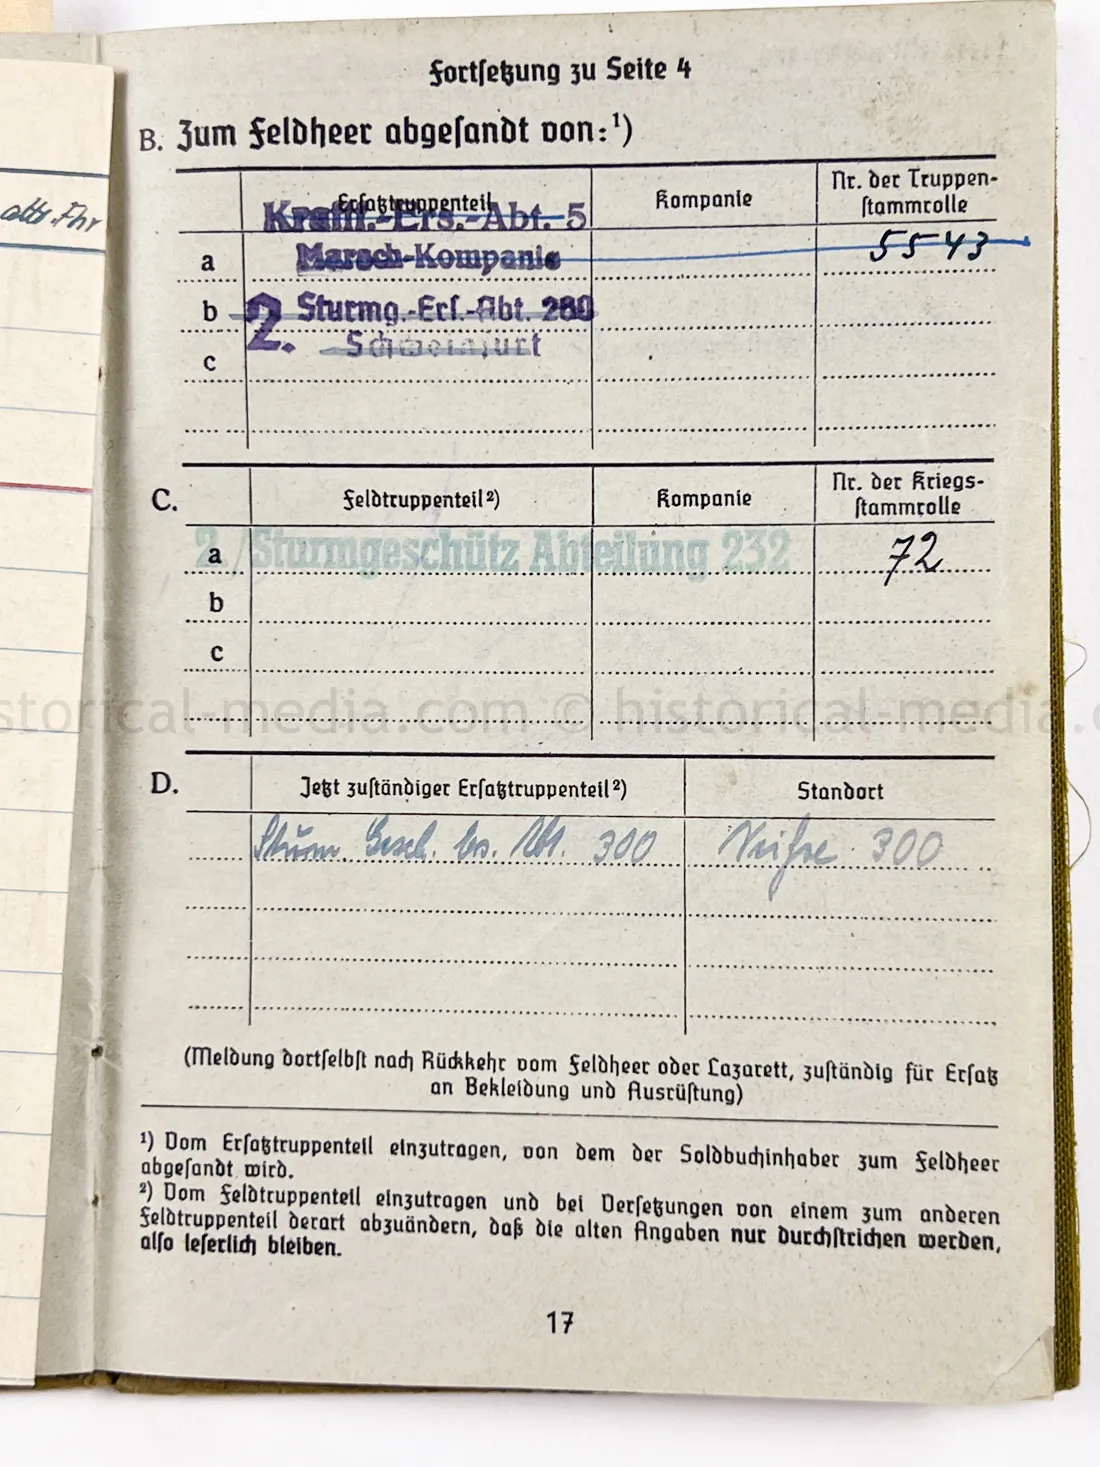 Fortsetzung zu Seite 4
B. Zum Feldheer abgesandt von:¹)
Ersatztruppenteil Kompanie Nr. der Truppen-
stammrolle
Kraftf.-Ers.-Abt. 5
a Marsch-Kompanie 5543
b 2. Sturmg.-Ers.-Abt. 200
Schweinfurt
c
C. Feldtruppenteil²) Kompanie Nr. der Kriegs-
stammrolle
a 2./Sturmgeschütz Abteilung 232 72
b
c
historical-media.com © historical-media.c
D. Jetzt zuständiger Ersatztruppenteil²) Standort
Sturm. Gesch. Ers. Abt. 300 Neisse 300
(Meldung dortselbst nach Rückkehr vom Feldheer oder Lazarett, zuständig für Ersatz
an Bekleidung und Ausrüstung)
¹) Vom Ersatztruppenteil einzutragen, von dem der Soldbuchinhaber zum Feldheer
abgesandt wird.
²) Vom Feldtruppenteil einzutragen und bei Versetzungen von einem zum anderen
Feldtruppenteil derart abzuändern, daß die alten Angaben nur durchstrichen werden,
also leserlich bleiben.
17